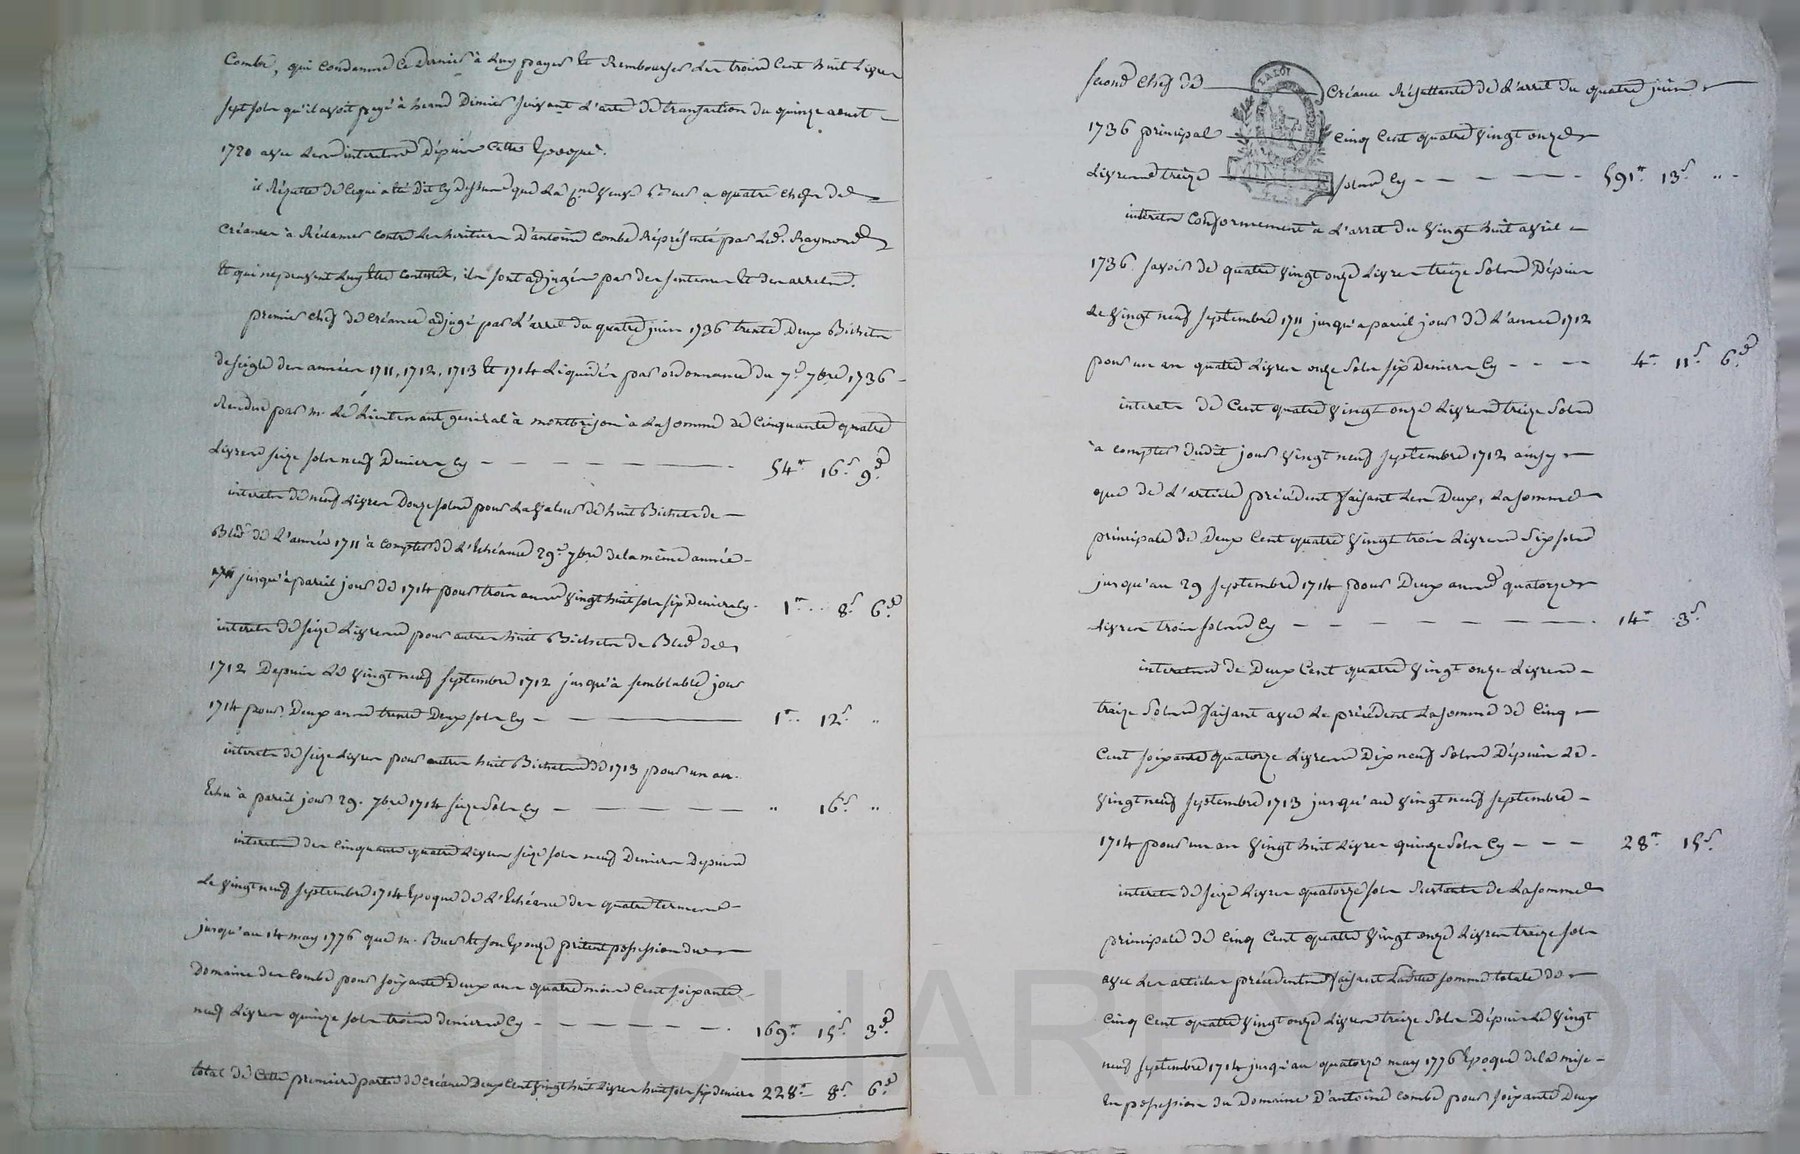 Combe, qui condamne ce dernier à luy payer et rembourser les trois cent huit livres
sept sols qu'il avoit payé à Dimier suivant l'acte de transaction du quinze aout
1720 avec les interets depuis cette Epoque.
il résulte de ce qui a été dit cy dessus que la veuve a quatre chefs de
créances à réclamer contre les héritiers d'antoine combe représenté par led. Raymond
et qui ne peuvent luy être contesté, ils sont adjugés par des sentences et des arrets.
premier chef de créance adjugé par l'arret du quatre juin 1736 trente deux Bichets
de seigle des années 1711, 1712, 1713 et 1714 liquidés par ordonnance du 7e 7bre 1736
Rendue par m. le Lieutenant general à montbrison à la somme de Cinquante quatre
Livres seize sols neuf Deniers Cy 54# 16s 9d
interets de neuf livres douze sols pour la valeur de huit Bichets de
Bled de l'année 1711 à compter de l'Echéance 29e 7bre de la même année
jusqu'à pareil jour de 1714 pour trois ans vingt huit sols six Deniers Cy 1# 8s 6d
interets de seize livres pour autres huit Bichets de Bled de
1712 Depuis le vingt neuf septembre 1712 jusqu'à semblable jour
1714 pour Deux ans trente Deux sols Cy 1# 12s "
interets de seize livres pour autres huit Bichets de 1713 pour un an
Echu à pareil jour 29. 7bre 1714 seize sols Cy " 16s "
interets des cinquante quatre livres seize sols neuf Deniers Depuis
Le vingt neuf septembre 1714 Epoque de l'Echéance des quatre termes
jusqu'au 14 may 1776 que m. et son Epouze prirent possession du
Domaine des Combe pour soixante Deux ans quatre mois Cent soixante
neuf Livres quinze sols trois deniers Cy 169# 15s 3d
total de cette premiere partie de créance Deux Cent vingt huit livres huit sols six deniers 228# 8s 6d
second chef de Créance Résultante de l'arret du quatre juin
LA LOI
1736 principal Cinq Cent quatre vingt onze
Livres treize sols Cy 591# 13s "
interets Conformement à l'arret du vingt huit avril
1736 savoir de quatre vingt onze livres treize sols Depuis
Le vingt neuf septembre 1711 jusqu'a pareil jour de l'année 1712
pour un an quatre Livres onze sols six Deniers Cy 4# 11s 6d
interets de Cent quatre vingt onze Livres treize Sols
à compter dudit jour vingt neuf septembre 1712 ainsy
que de l'article précédent faisant les Deux, la somme
principale de Deux Cent quatre vingt trois Livres Six sols
jusqu'au 29 septembre 1714 pour Deux année quatorze
Livres trois sols Cy 14# 3s
interets de Deux Cent quatre vingt onze Livres
treize Sols faisant avec le précédent la somme de Cinq
Cent soixante quatorze Livres Dix neuf Sols Dépuis Le
vingt neuf septembre 1713 jusqu'au vingt neuf septembre
1714 pour un an vingt huit Livres quinze Sols Cy 28# 15s
interets de seize Livres quatorze sols Restante de la somme
principale de Cinq Cent quatre vingt onze Livres treize sols
avec les articles précédents faisant ladite somme totale de
Cinq Cent quatre vingt onze Livres treize Sols Dépuis Le vingt
neuf septembre 1714 jusqu'au quatorze may 1776 Epoque de la mise
En possession du Domaine D'antoine combe pour soixante Deux
CHARPILLON